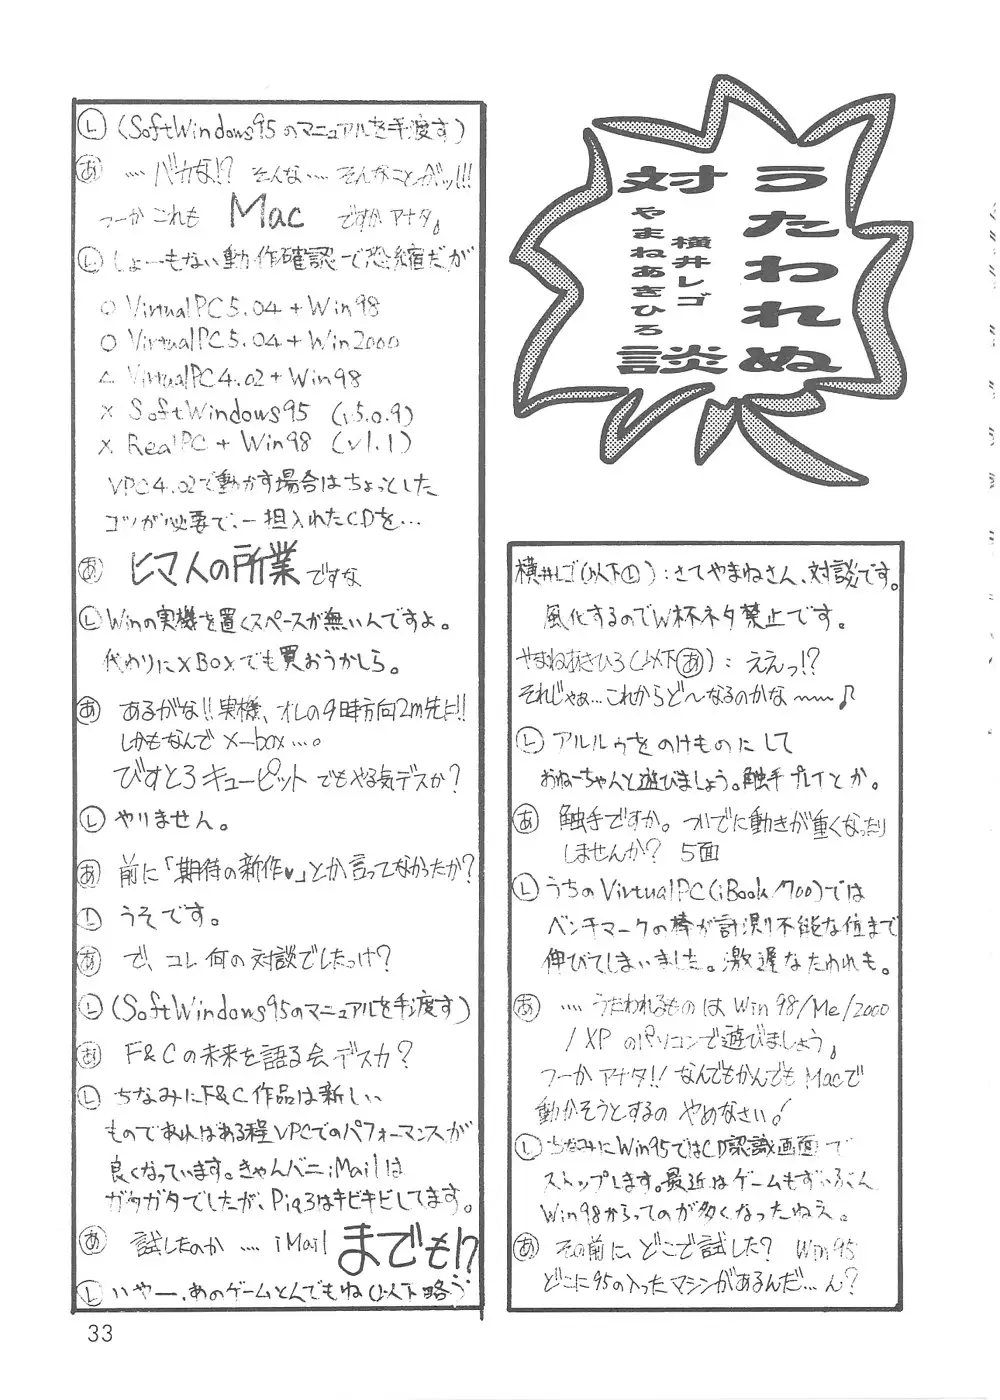 うたわれぬ
対談
横井レゴ
やまねあきひろ
横井レゴ(以下Ⓛ):さてやまねさん、対談です。
風化するのでW杯ネタ禁止です。
やまねあきひろ(以下㋐):ええっ!?
それじゃぁ…これからど〜なるのかな〜〜♪
Ⓛ アルルゥをのけものにして
おねーちゃんと遊びましょう。触手プレイとか。
あ 触手ですか。ついでに動きが重くなったり
しませんか? 5面
Ⓛ うちのVirtualPC(iBook/700)では
ベンチマークの棒が計測不能な位まで
伸びてしまいました。激遅なたわれも。
あ ‥‥うたわれるものは Win98/Me/2000
/XP のパソコンで遊びましょう。
つーか アナタ!! なんでもかんでもMacで
動かそうとするの やめなさい!
Ⓛ ちなみにWin95ではCD認識画面で
ストップします。最近はゲームもずいぶん
Win98からってのが多くなったねえ。
あ その前に、どこで試した? Win95
どこに95の入ったマシンがあるんだ…ん?
Ⓛ (SoftWindows95のマニュアルを手渡す)
あ ‥‥バカな!? そんな‥‥そんなことがッ!!!
つーか これも Mac ですか アナタ。
Ⓛ しょーもない動作確認で恐縮だが
○ VirtualPC5.04+Win98
○ VirtualPC5.04+Win2000
△ VirtualPC4.02+Win98
× SoftWindows95 (v5.0.9)
× RealPC+Win98 (v1.1)
VPC4.02で動かす場合はちょっとした
コツが必要で、一担入れたCDを…
あ ヒマ人の所業ですな
Ⓛ Winの実機を置くスペースが無いんですよ。
代わりにXBoxでも買おうかしら。
あ あるがな!!実機、オレの9時方向2m先に!!
しかもなんで X-box…。
びすとろキューピット でもやる気デスか?
Ⓛ やりません。
あ 前に「期待の新作♥」とか言ってなかったか?
Ⓛ うそです。
あ で、コレ何の対談でしたっけ?
Ⓛ (SoftWindows95のマニュアルを手渡す)
あ F&Cの未来を語る会デスカ?
Ⓛ ちなみにF&C作品は新しい
ものであればある程VPCでのパフォーマンスが
良くなっています。きゃんバニiMailは
ガタガタでしたが、Pia3はキビキビしてます。
あ 試したのか‥‥iMailまでも!?
Ⓛ いやー、あのゲームとんでもね(以下略)
33